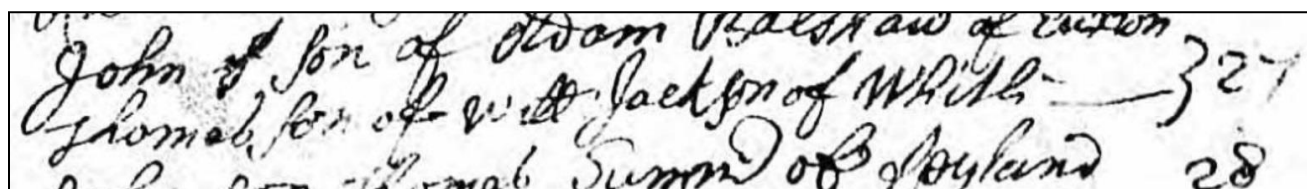 John son of Adam Balshaw of Euxton
Thomas son of Will Jackson of Whitli — } 27
son Thomas Sumnr of Heyland 28